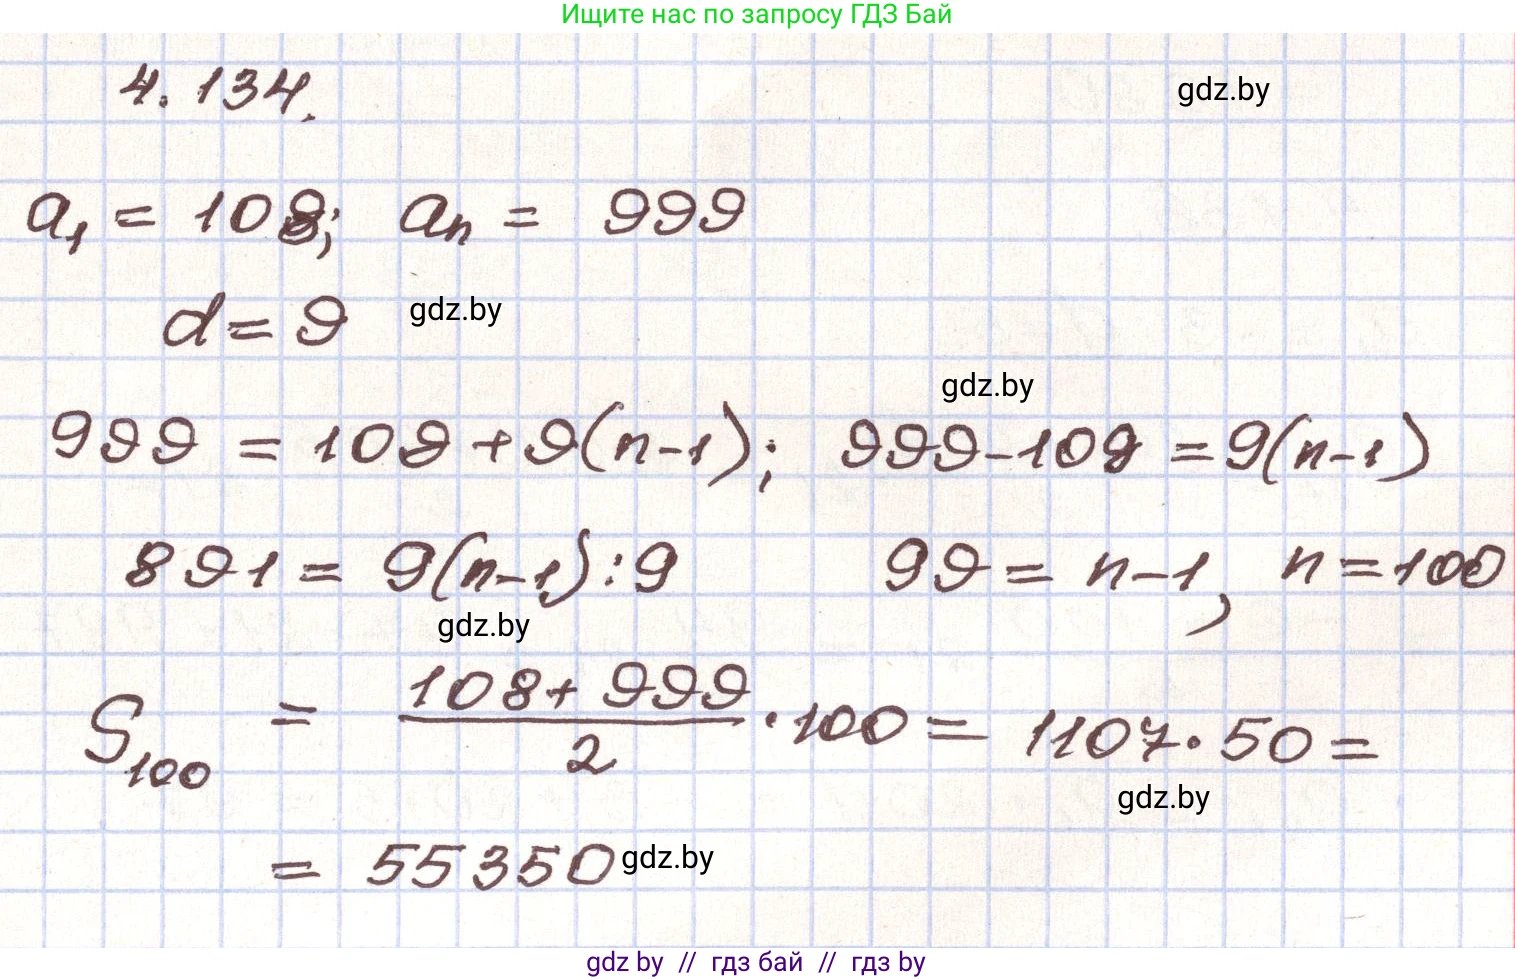 Ищите нас по запросу ГДЗ Бай
4.134.
gdz.by
a₁ = 108; aₙ = 999
d = 9
gdz.by
gdz.by
999 = 109 + 9(n-1); 999-109 = 9(n-1)
891 = 9(n-1) :9 99 = n-1, n=100
gdz.by
S₁₀₀ = (108+999)/2 · 100 = 1107 · 50 =
gdz.by
= 55350
gdz.by
gdz by // гдз бай // гдз by